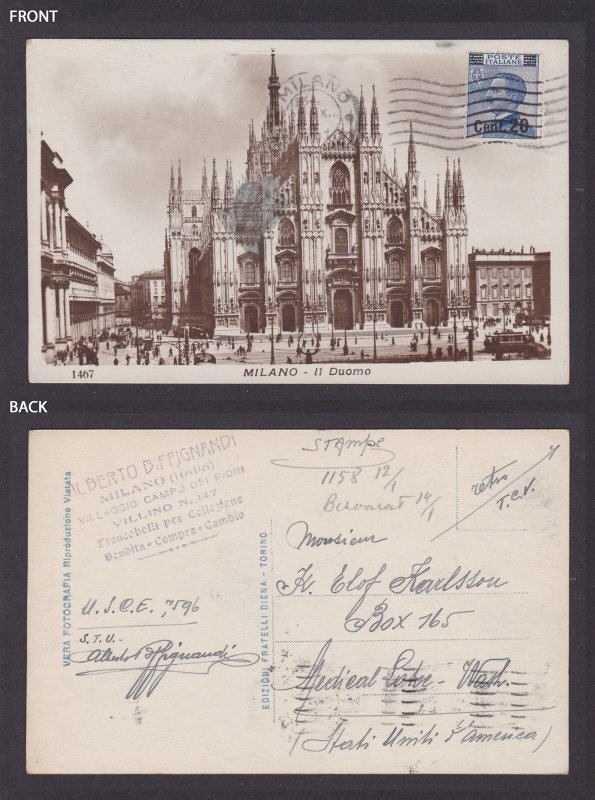 FRONT
MILANO
POSTE
ITALIANE
Cent. 20
1467
MILANO - Il Duomo
BACK
ALBERTO BIFFIGNANDI
MILANO (Italia)
VILLAGGIO CAMPO DEI FIORI
VILLINO N. 147
Francobolli per Collezione
Vendita - Compra - Cambio
VERA FOTOGRAFIA Riproduzione Vietata
U.S.C.E. 7596
S.T.U.
Alberto Biffignandi
EDIZIONI FRATELLI DIENA - TORINO
STAMPE
1158 12/1
14/1
retro
T.C.V.
Monsieur
K. Elof Karlsson
Box 165
Medical Lake - Wash.
(Stati Uniti d'America)